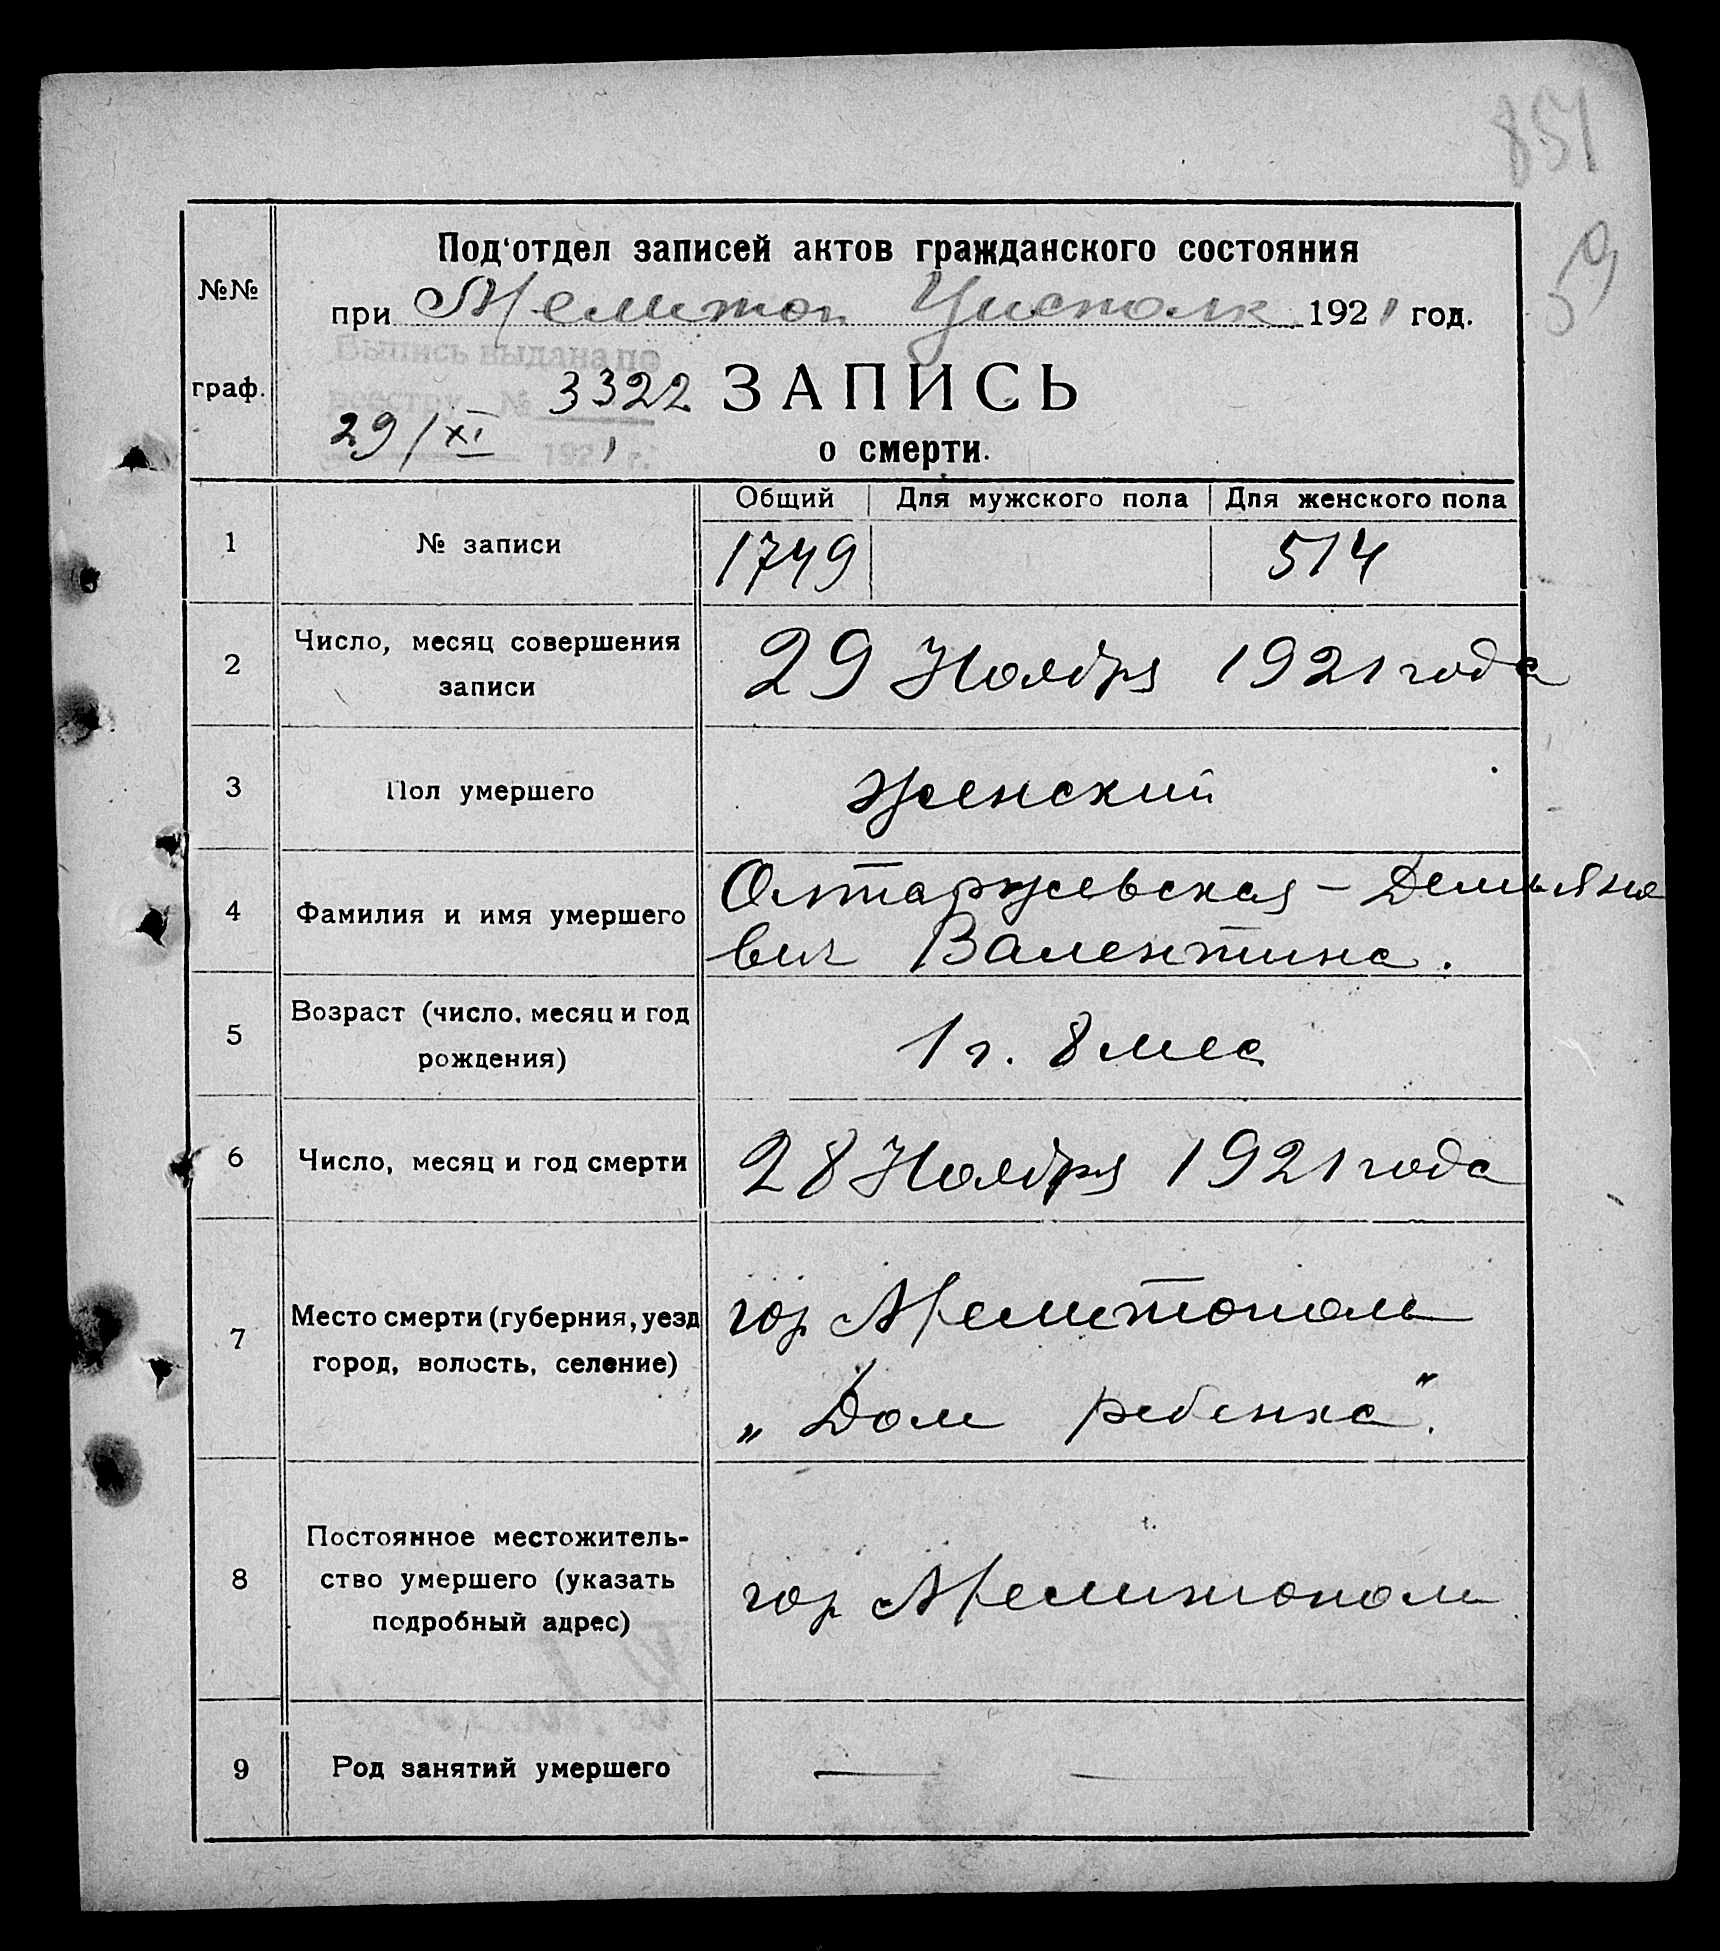 851
59
№№
граф.
Под'отдел записей актов гражданского состояния
при Мелитоп Уисполк 1921 год.
Выпись выдана по
реестру № 3322
29/XI 1921 г.
ЗАПИСЬ
о смерти.
Общий Для мужского пола Для женского пола
1 № записи 1749 514
2 Число, месяц совершения
записи
29 Ноября 1921 года
3 Пол умершего женский
4 Фамилия и имя умершего
Олтаржевская – Демьяно
вич Валентина.
5 Возраст (число, месяц и год
рождения)
1 г. 8 мес
6 Число, месяц и год смерти 28 Ноября 1921 года
7 Место смерти (губерния, уезд
город, волость, селение)
гор Мелитополь
„Дом ребенка".
8 Постоянное местожитель-
ство умершего (указать
подробный адрес)
гор Мелитополь
9 Род занятий умершего — —